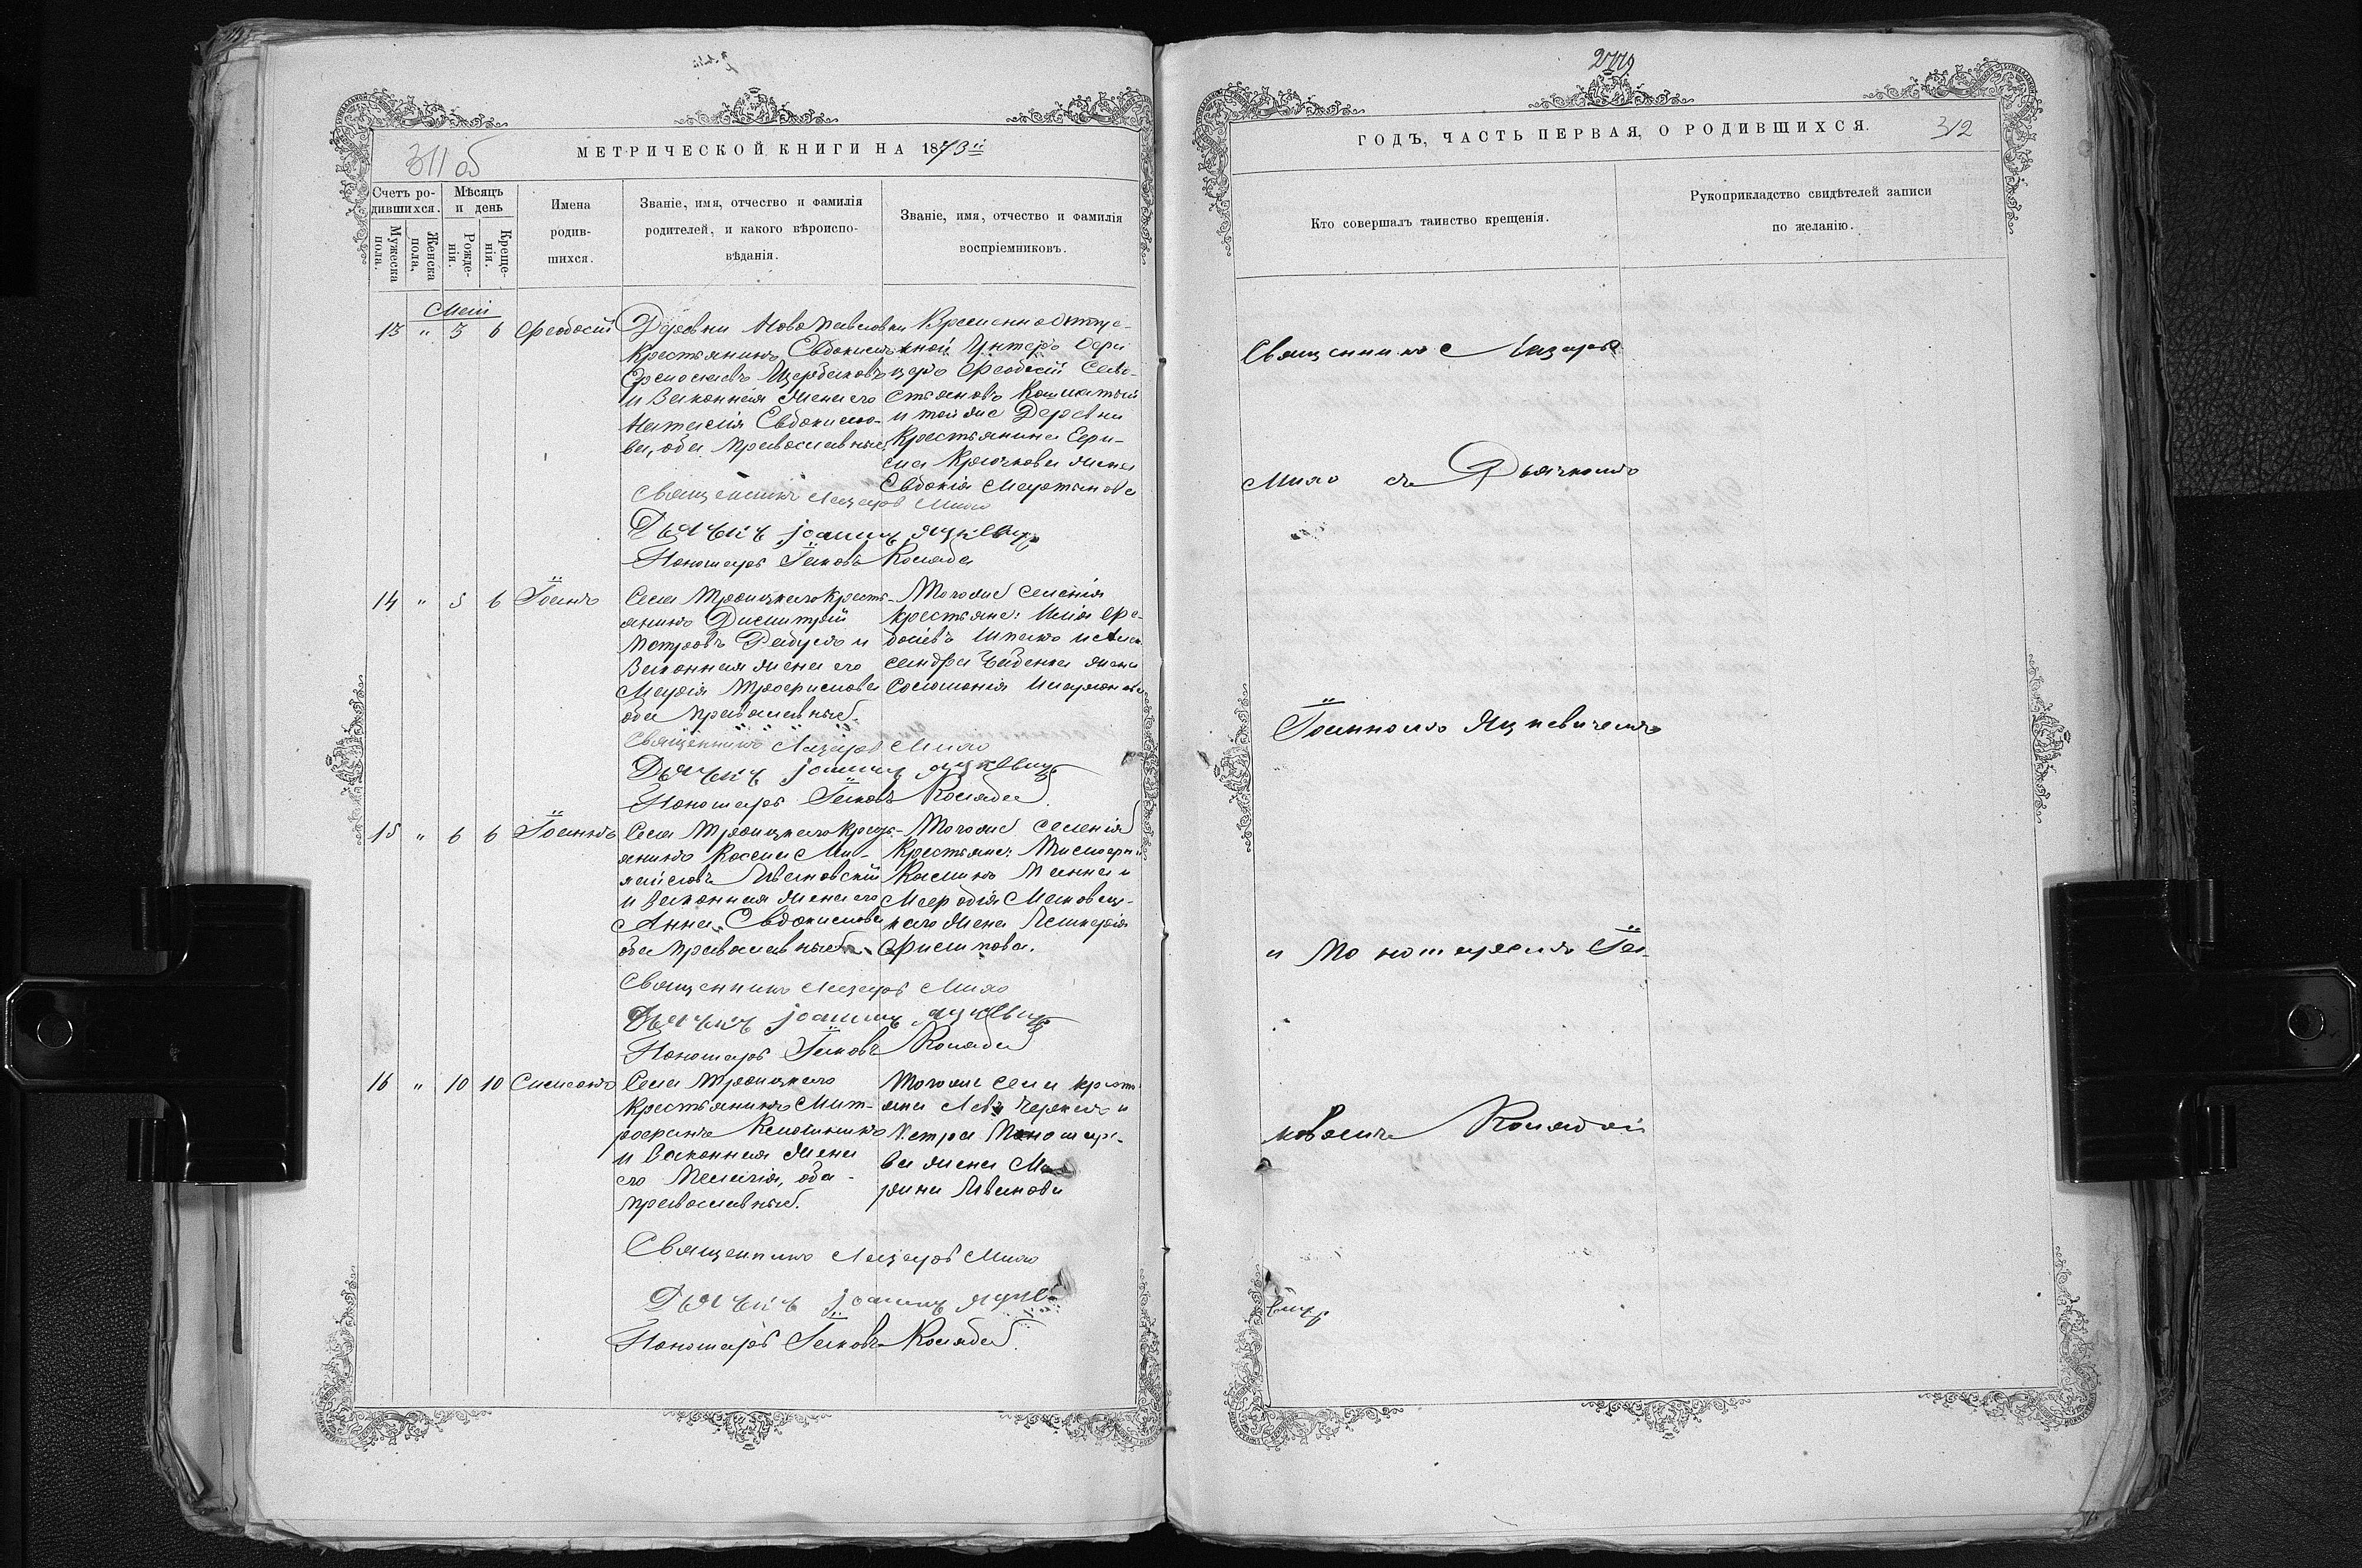 311 об
МЕТРИЧЕСКОЙ КНИГИ НА 1873й
Счетъ ро-
дившихся.
Мужеска
пола.
Женска
пола.
Мѣсяцъ
и день
Рожде-
нія.
Креще-
нія.
Имена
родив-
шихся.
Званіе, имя, отчество и фамилія
родителей, и какого вѣроиспо-
вѣданія.
Званіе, имя, отчество и фамилія
воспріемниковъ.
Маій
13 " 3 6 Феодосій
Деревни Ново Павловки
Крестьянинъ Евдокимъ
Щербаковъ
и законная жена его
Наталія Евдокимо-
ва, оба православные
Временноотпус-
кной Унтеръ Офи
церъ Феодосій Сева-
стьяновъ
и той же Деревни
Крестьянина Гера-
сима Крючкова жена
Евдокія Мартынова
Священникъ Лазарь Мило
Дьячекъ Іоаннъ Яцкевичъ
Пономарь Іаковъ Коляда
14 " 5 6 Іоаннъ
Села Троицкаго Кресть-
янинъ Димитрій
Петровъ и
Законная жена его
Марія Трофимова
оба православные.
Того же селенія
крестьяне: Илія Фе-
доsіевъ Шпакъ и Алек-
сандра жена
Соломонія Иларіонова
Священникъ Лазарь Мило
Дьячекъ Іоаннъ Яцкевичъ
Пономарь Іаковъ Коляда
15 " 6 6 Іоаннъ
Села Троицкаго Кресть-
янинъ Косма Ми-
хайловъ Ивановскій
и законная жена его
Анна Евдокимова
оба православные.
Того же селенія
Крестьяне: Тимофей
и
Мефодія Маковец-
каго жена Гликерія
Филипова.
Священникъ Лазарь Мило
Дьячекъ Іоаннъ Яцкевичъ
Пономарь Іаковъ Коляда
16 " 10 10 Симеонъ
Села Троицкаго
Крестьянинъ Мит-
рофанъ
и законная жена
его Пелагія, оба
православные.
Того же села кресть
яне Левъ и
Петра Пономаре-
ва жена Ма
рина Иванова
Священникъ Лазарь Мило
Дьячекъ Іоаннъ Яцке
Пономарь Іаковъ Коляда.
ГОДЪ, ЧАСТЬ ПЕРВАЯ, О РОДИВШИХСЯ.
312
Кто совершалъ таинство крещенія.
Рукоприкладство свидѣтелей записи
по желанію.
Священникъ Лазарь
Мило съ Дьячкомъ
Іоанномъ Яцкевичемъ
и Пономаремъ Іа-
ковомъ Колядой
вичъ